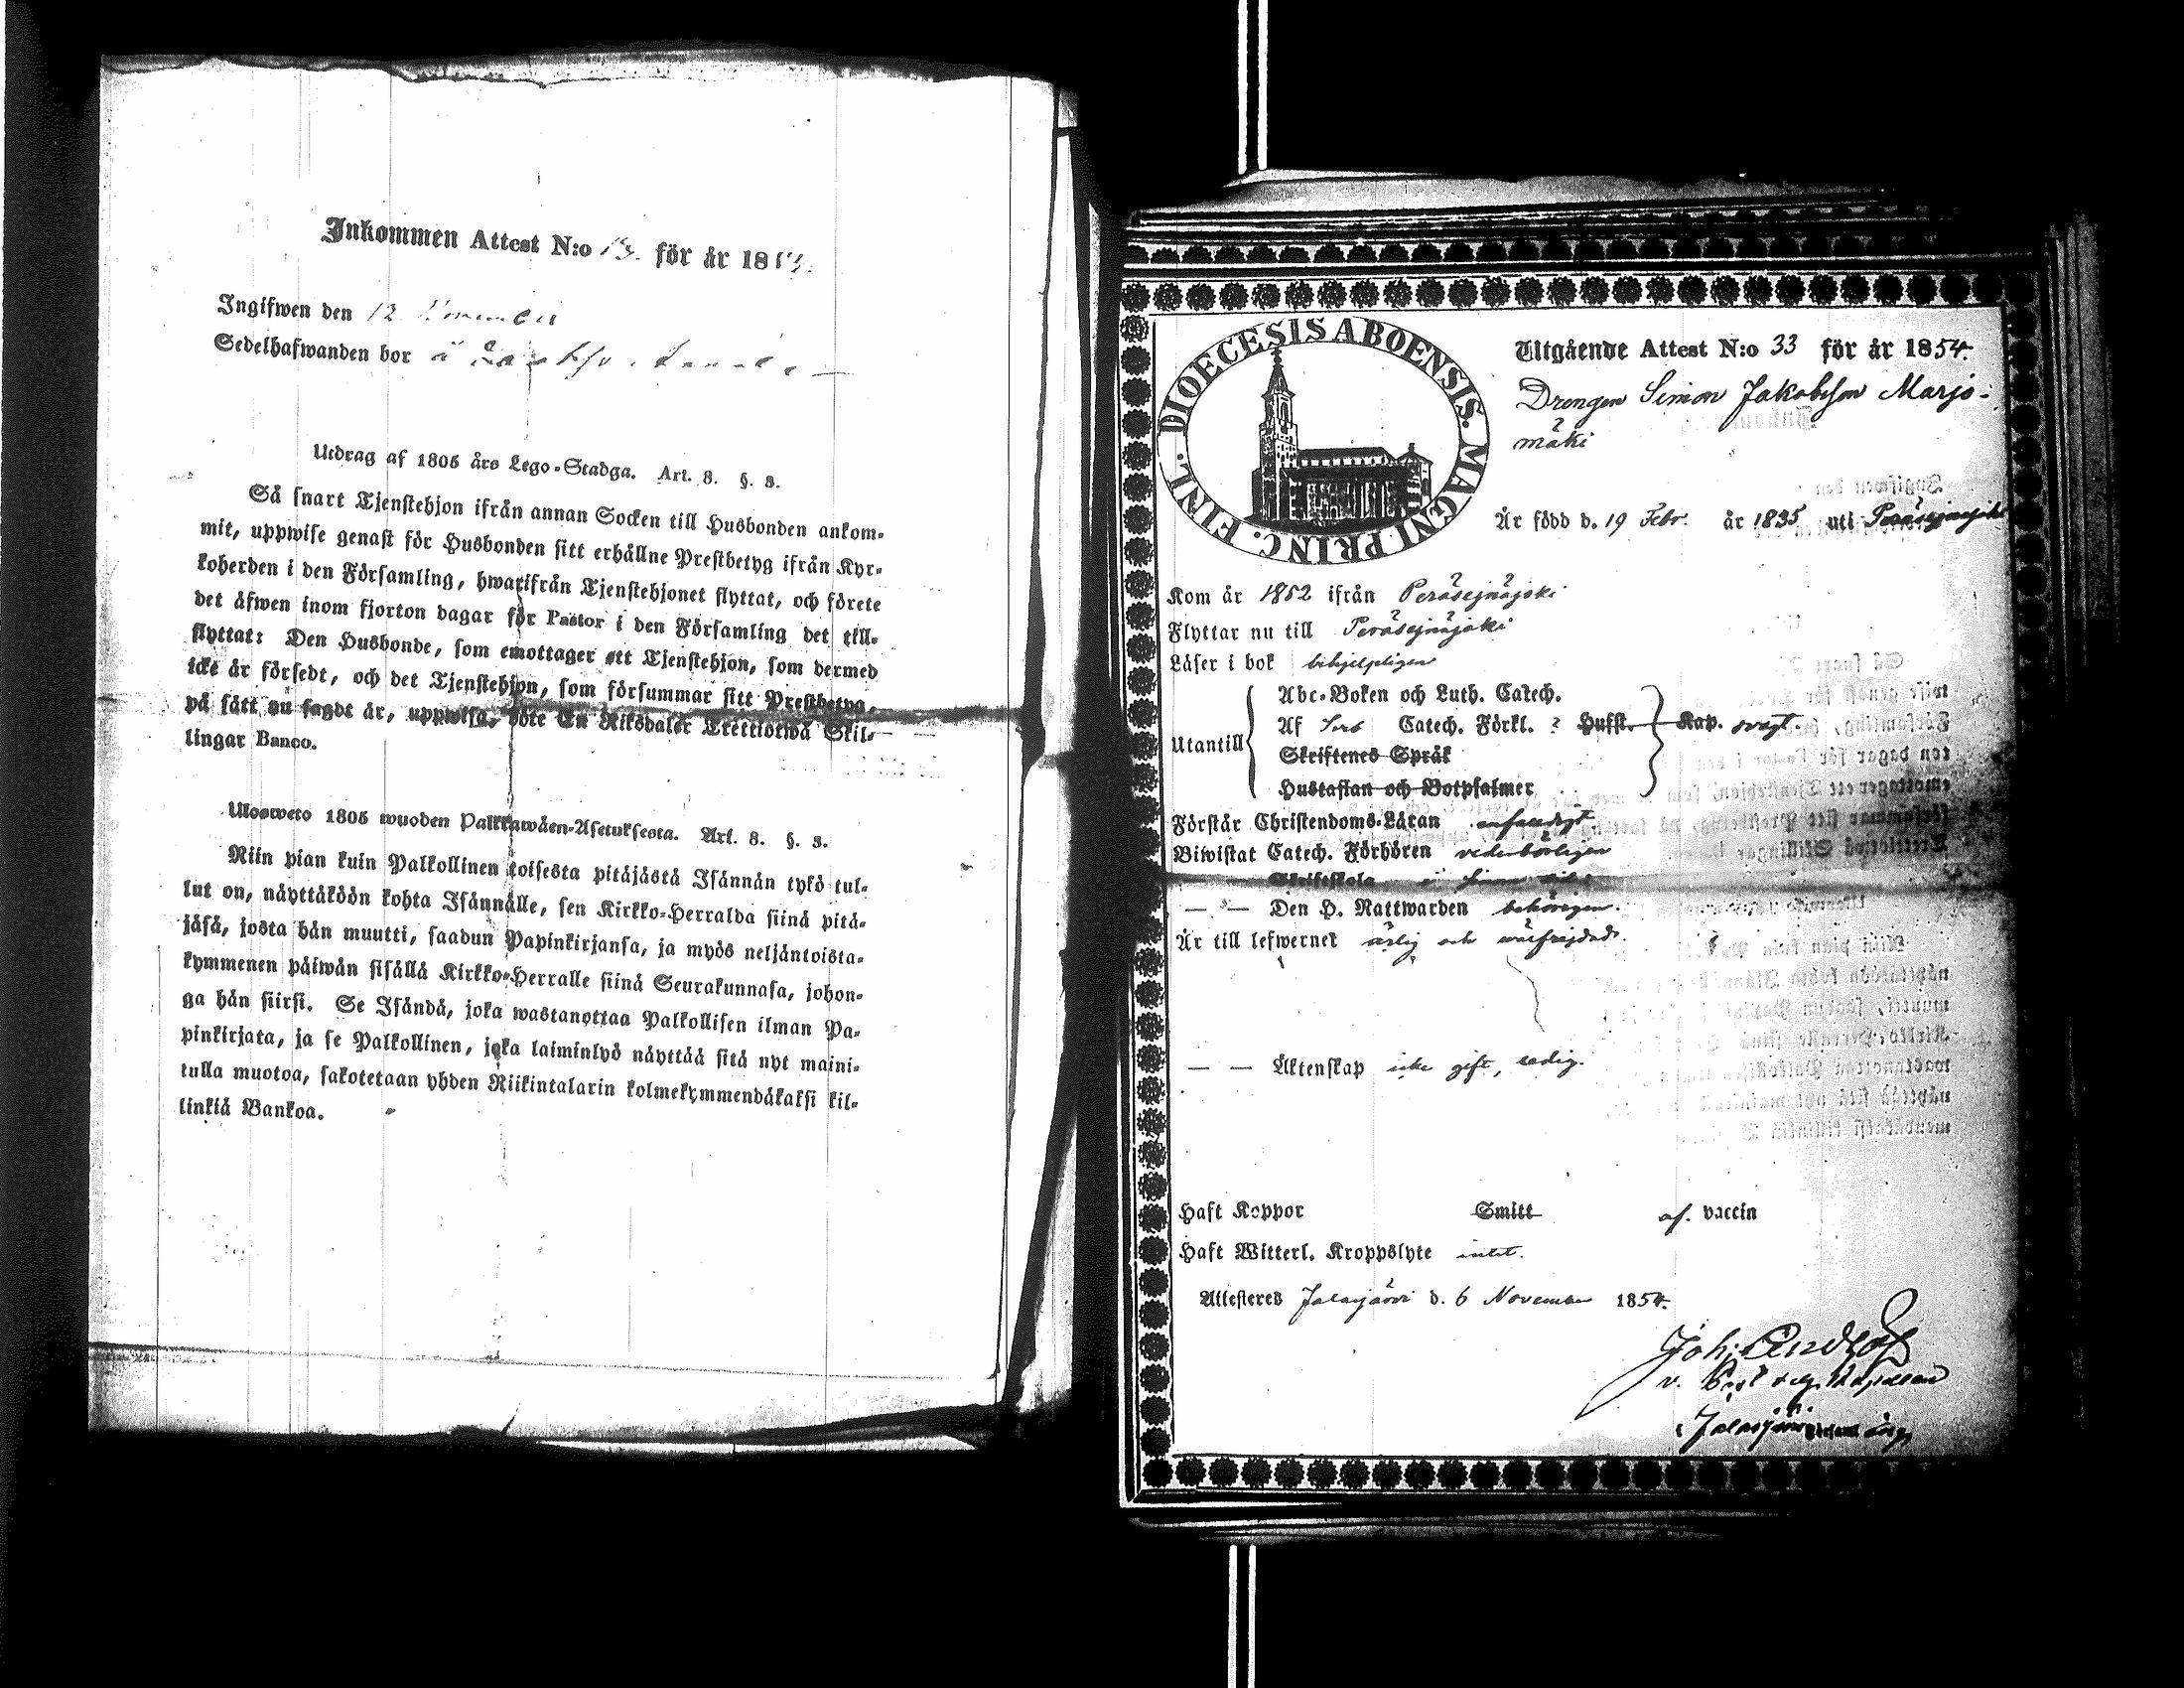 Inkommen Attest N:o 13. för år 18
Ingifwen den 12 November
Sedelhafwanden bor å
Utdrag af 1805 års Lego-Stadga. Art. 8. §. 3.
Så snart Tjenstehjon ifrån annan Socken till Husbonden ankom-
mit, uppwise genast för Husbonden sitt erhållne Prestbetyg ifrån Kyr-
koherden i den Församling, hwarifrån Tjenstehjonet flyttat, och förete
det äfwen inom fjorton dagar för Pastor i den Församling det till-
flyttat: Den Husbonde, som emottager ett Tjenstehjon, som dermed
icke är försedt, och det Tjenstehjon, som försummar sitt Prestbetyg,
på sätt nu sagdt är, uppwisa, böte En Riksdaler Trettiotwå Skil-
lingar Banco.
Ulosweto 1805 wuoden Palkkawäen-Asetuksesta. Art. 8. §. 3.
Niin pian kuin Palkollinen toisesta pitäjästä Isännän tykö tul-
lut on, näyttäköön kohta Isännälle, sen Kirkko-Herralda siinä pitä-
jäsä, josta hän muutti, saadun Papinkirjansa, ja myös neljäntoista-
kymmenen päiwän sisällä Kirkko-Herralle siinä Seurakunnasa, johon-
ga hän siirsi. Se Isändä, joka wastanottaa Palkollisen ilman Pa-
pinkirjata, ja se Palkollinen, joka laiminlyö näyttää sitä nyt maini-
tulla muotoa, sakotetaan yhden Riikintalarin kolmekymmendäkaksi kil-
linkiä Bankoa.
DIOECESIS ABOENSIS. MAGNI PRINC. FINL.
Utgående Attest N:o 33 för år 1854.
Drengen Simon Jakobsson Marjo-
mäki
Är född d. 19 Febr. år 1835 uti Peräsejnäjoki
Kom år 1852 ifrån Peräsejnäjoki
Flyttar nu till Peräsejnäjoki
Läser i bok behjelpligen
Utantill
Abc-Boken och Luth. Catech.
Af Catech. Förkl. 2 Hufst. Kap. svagt.
Skriftenes Språk
Hustaflan och Botpsalmer
Förstår Christendoms-Läran enfaldigt
Biwistat Catech. Förhören vederbörligen
Skriftskola
— " — Den H. Nattwarden behörigen.
Är till lefwernet ärlig och
— — Äktenskap icke gift, ledig.
Haft Koppor Smitt af. vaccin
Haft Witterl. Kroppslyte intet.
Attesteres Jalasjärvi d. 6 November 1854.
Joh:
v. Past
i Jalasjärvi